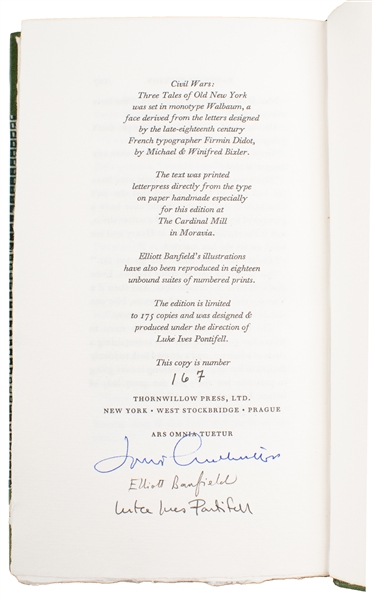 Civil Wars:
Three Tales of Old New York
was set in monotype Walbaum, a
face derived from the letters designed
by the late-eighteenth century
French typographer Firmin Didot,
by Michael & Winifred Bixler.
The text was printed
letterpress directly from the type
on paper handmade especially
for this edition at
The Cardinal Mill
in Moravia.
Elliott Banfield's illustrations
have also been reproduced in eighteen
unbound suites of numbered prints.
The edition is limited
to 175 copies and was designed &
produced under the direction of
Luke Ives Pontifell.
This copy is number
167
THORNWILLOW PRESS, LTD.
NEW YORK • WEST STOCKBRIDGE • PRAGUE
ARS OMNIA TUETUR
Louis Auchincloss
Elliott Banfield
Luke Ives Pontifell